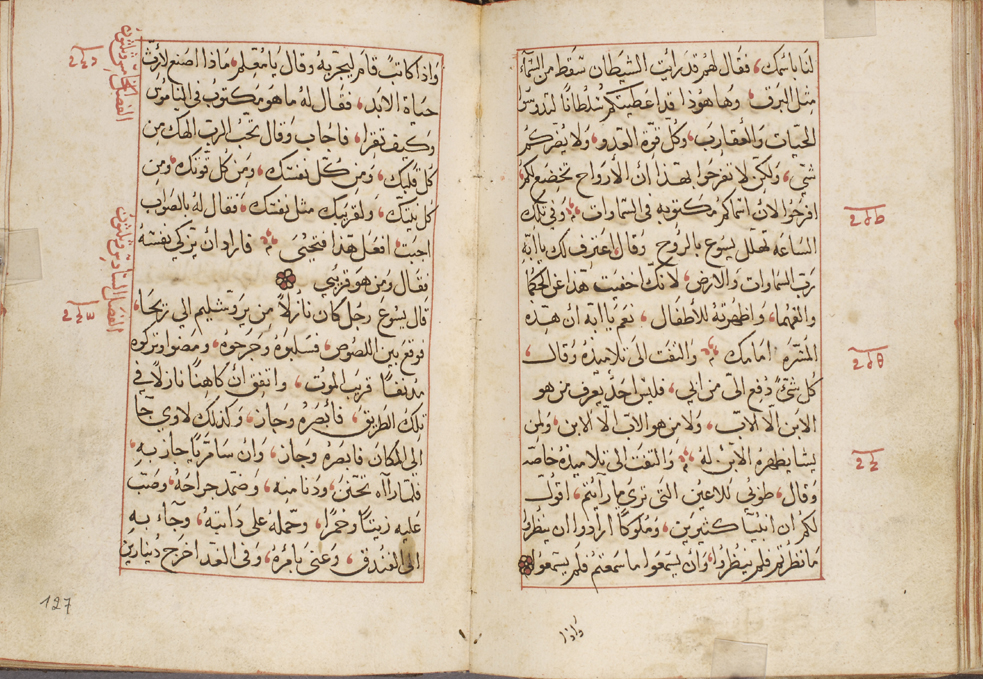 لنا باسمك، فقال لهم قد رايت الشيطان سقط من السماء
مثل البرق، وها هوذا قد اعطيتكم سلطانًا لتدوسوا
الحيات والعقارب، وكل قوة العدو، ولا يضركم
شي، ولكن لا تفرحوا بهذا ان الأرواح تخضع لكم،
افرحوا لان اسماكم مكتوبه في السماوات وفي تلك
الساعه تهلل يسوع بالروح وقال اعترف لك يا ابه
رب السماوات والارض، لانك اخفيت هذا عن الحكما
والفهما، واظهرته للأطفال، نعم يا ابه ان هذه
المسره امامك والتفت الى تلاميذه وقال،
كل شيء دفع الي من ابي، فليس احد يعرف من هو
الابن الا الاب، ولا من هو الاب الا الابن، ولمن
يشا يظهره الابن له والتفت الى تلاميذه خاصه
وقال، طوبى للاعين التي ترى ما رأيتم، اقول
لكم ان انبيا كثيرين، وملوكًا ارادوا ان ينظروا
ما نظرتم فلم ينظروا، وان يسمعوا ما سمعتم فلم يسمعوا
واذا
الفصل الخامس وثلثون
الفصل السادس وثلثون
واذا كاتب قام ليجربه وقال يا معلم، ماذا اصنع لأرث
حياة الابد، فقال له ما هو مكتوب في الناموس
وكيف تقرا، فاجاب وقال تحب الرب الهك من
كل قلبك، ومن كل نفسك، ومن كل قوتك، ومن
كل نيتك، ولقريبك مثل نفسك، فقال له بالصواب
اجبت افعل هذا فتحيى فاراد ان يزكي نفسه
فقال ومن هو قريبي
قال يسوع رجل كان نازلاً من يروشليم الى ريحا،
فوقع بين اللصوص، فسلبوه وجرحوه، ومضوا وتركوه
مدنفًا قريب الموت، واتفق ان كاهنًا نازلاً في
تلك الطريق، فأبصره وجاز، وكذلك لاوي جا
الى المكان فابصره وجاز، وان سامريًا جاز به،
فلما راه تحنن، ودنا منه، وضمد جراحه، وصب
عليه زيتًا وخمرًا، وحمله على دابته، وجاء به
الى الفندق، وعني بامره، وفي الغد اخرج دينارين
127